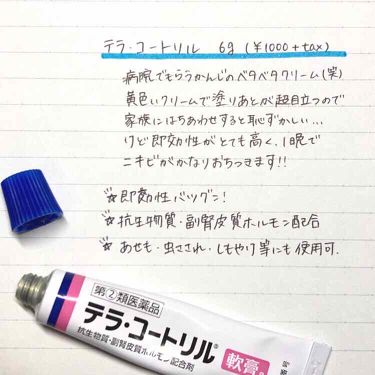 テラ・コートリル 6g (¥1000+tax)
病院でもらうかんじのベタベタクリーム(笑)
黄色いクリームで塗りあとが超目立つので
家族にはちあわせすると恥ずかしい...
けど即効性がとても高く、1晩で
ニキビがかなりおちつきます!!
☆即効性バツグン!
☆抗生物質・副腎皮質ホルモン配合
☆あせも・虫さされ・しもやけ等にも使用可.
指②類医薬品
テラ・コートリル®
軟膏
抗生物質・副腎皮質ホルモン配合剤